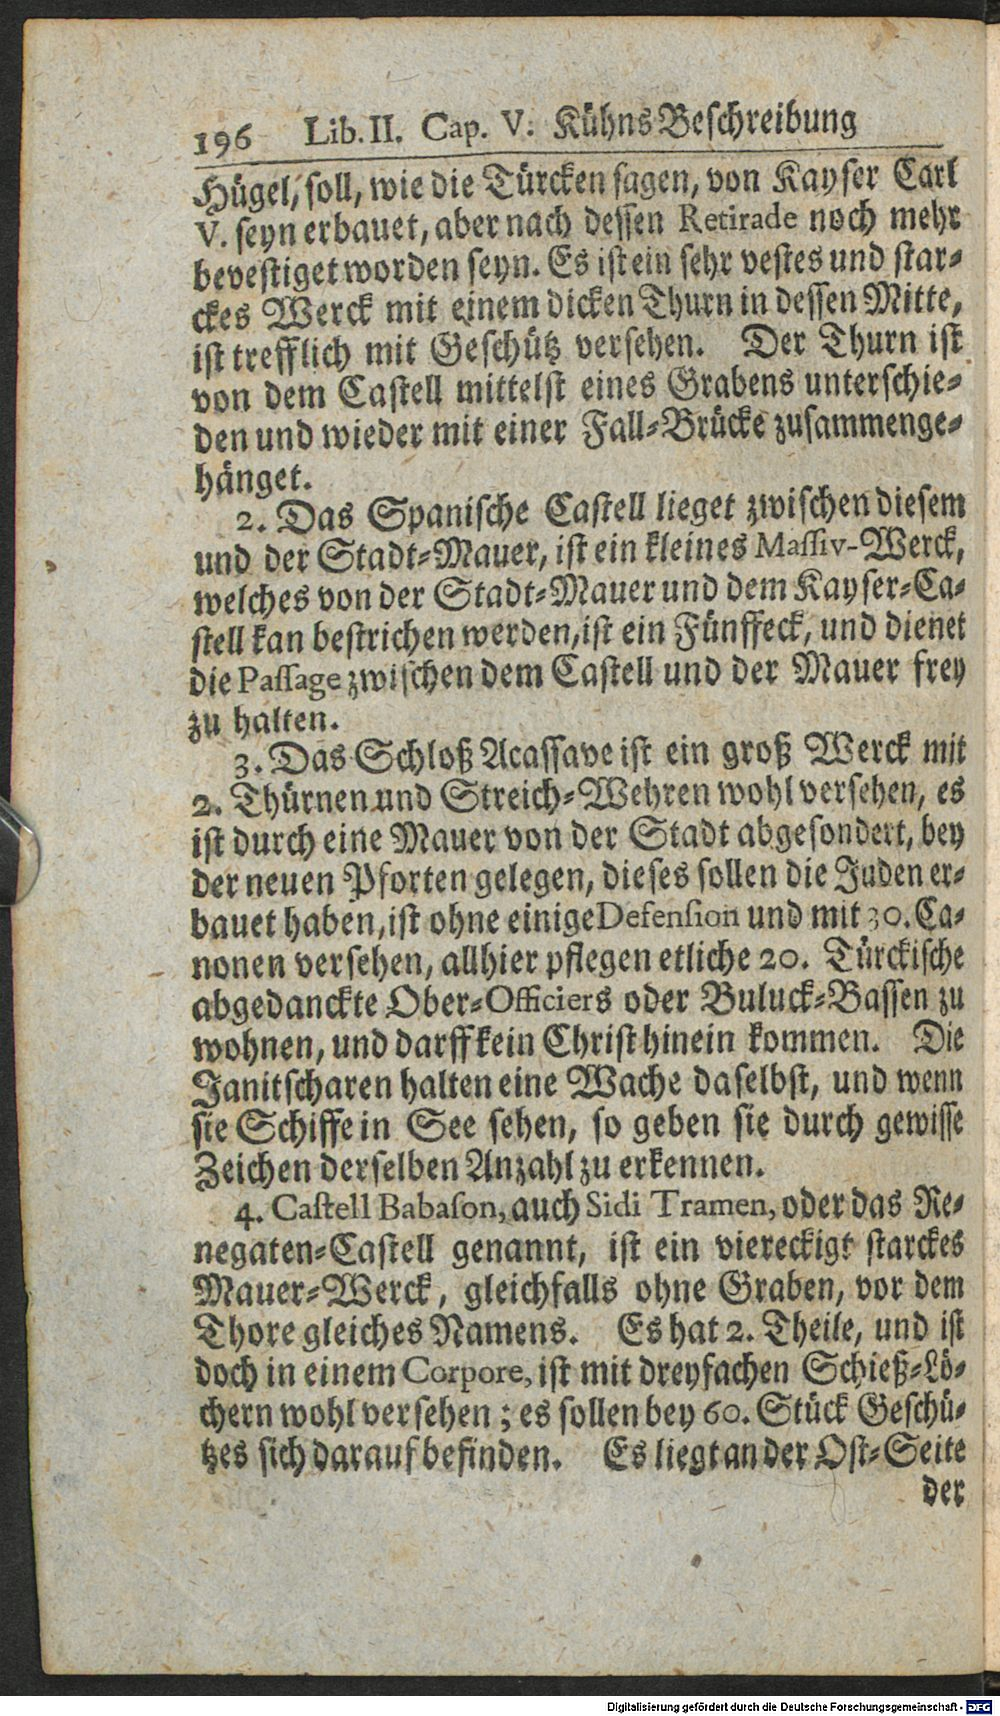 196 Lib. II. Cap. V. Kühns Beschreibung
Hügel, soll, wie die Türcken sagen, von Kayser Carl
V. seyn erbauet, aber nach dessen Retirade noch mehr
bevestiget worden seyn. Es ist ein sehr vestes und star-
ckes Werck mit einem dicken Thurn in dessen Mitte,
ist trefflich mit Geschütz versehen. Der Thurn ist
von dem Castell mittelst eines Grabens unterschie-
den und wieder mit einer Fall-Brücke zusammenge-
hänget.
2. Das Spanische Castell lieget zwischen diesem
und der Stadt-Mauer, ist ein kleines Massiv-Werck,
welches von der Stadt-Mauer und dem Kayser-Ca-
stell kan bestrichen werden, ist ein Fünffeck, und dienet
die Passage zwischen dem Castell und der Mauer frey
zu halten.
3. Das Schloß Acassave ist ein groß Werck mit
2. Thürnen und Streich-Wehren wohl versehen, es
ist durch eine Mauer von der Stadt abgesondert, bey
der neuen Pforten gelegen, dieses sollen die Juden er-
bauet haben, ist ohne einige Defension und mit 30. Ca-
nonen versehen, allhier pflegen etliche 20. Türckische
abgedanckte Ober-Officiers oder Buluck-Bassen zu
wohnen, und darff kein Christ hinein kommen. Die
Janitscharen halten eine Wache daselbst, und wenn
sie Schiffe in See sehen, so geben sie durch gewisse
Zeichen derselben Anzahl zu erkennen.
4. Castell Babason, auch Sidi Tramen, oder das Re-
negaten-Castell genannt, ist ein viereckigt starckes
Mauer-Werck, gleichfalls ohne Graben, vor dem
Thore gleiches Namens. Es hat 2. Theile, und ist
doch in einem Corpore, ist mit dreyfachen Schieß-Lö-
chern wohl versehen; es sollen bey 60. Stück Geschü-
tzes sich darauf befinden. Es liegt an der Ost-Seite
der
Digitalisierung gefördert durch die Deutsche Forschungsgemeinschaft - DFG